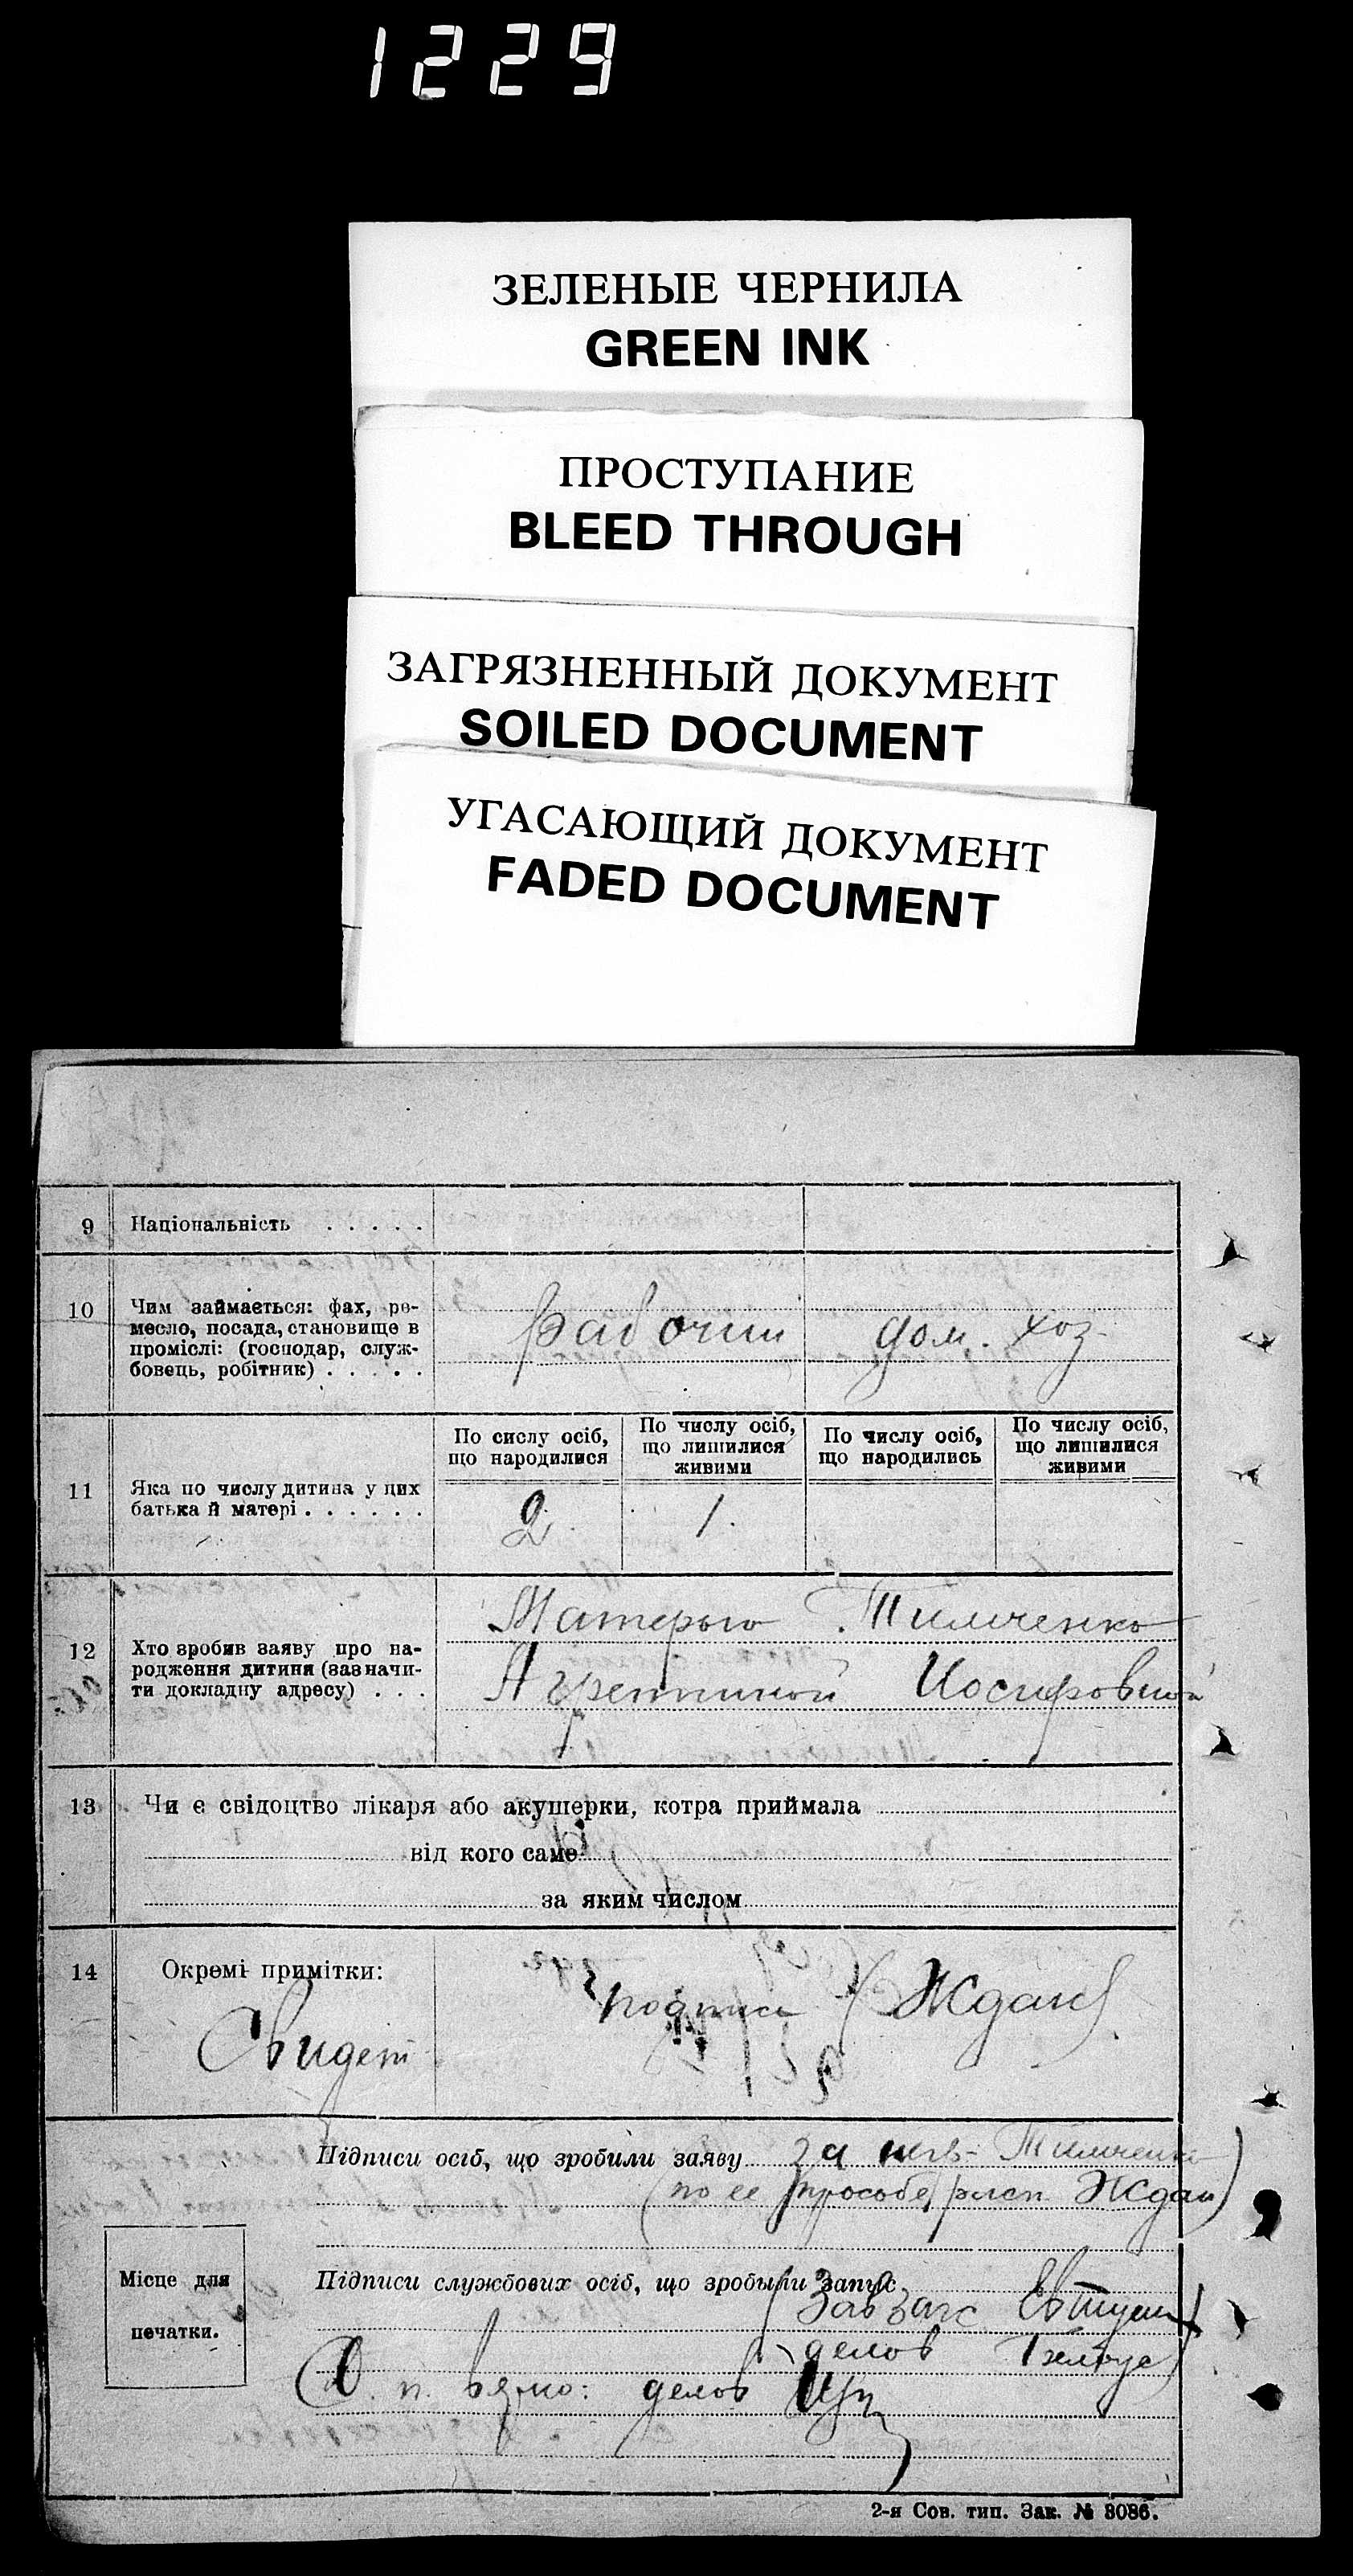 1229
ЗЕЛЕНЫЕ ЧЕРНИЛА
GREEN INK
ПРОСТУПАНИЕ
BLEED THROUGH
ЗАГРЯЗНЕННЫЙ ДОКУМЕНТ
SOILED DOCUMENT
УГАСАЮЩИЙ ДОКУМЕНТ
FADED DOCUMENT
9 Національність . . . . .
10 Чим займається: фах, ре-
месло, посада, становище в
проміслі: (господар, служ-
бовець, робітник) . . . . .
Рабочий дом. хоз.
11 Яка по числу дитина у цих
батька й матері . . . . . .
По сислу осіб,
що народилися
По числу осіб,
що лишилися
живими
По числу осіб,
що народились
По числу осіб,
що лишилися
живими
2. 1.
12 Хто зробив заяву про на-
родження дитини (зазначи-
ти докладну адресу) . . .
Матерью Тимченко
Агреппиной Иосифовной
13 Чи є свідоцтво лікаря або акушерки, котра приймала
від кого саме
за яким числом
14 Окремі примітки:
Свидет подписи (Ждан)
Підписи осіб, що зробили заяву за негр. Тимченко
(по ее просьбе расп. Ждан)
Місце для
печатки.
Підписи службових осіб, що зробили запис
Зав Загс Евтуш
делов
С. п. верно: делов
2-я Сов. тип. Зак. № 3086.